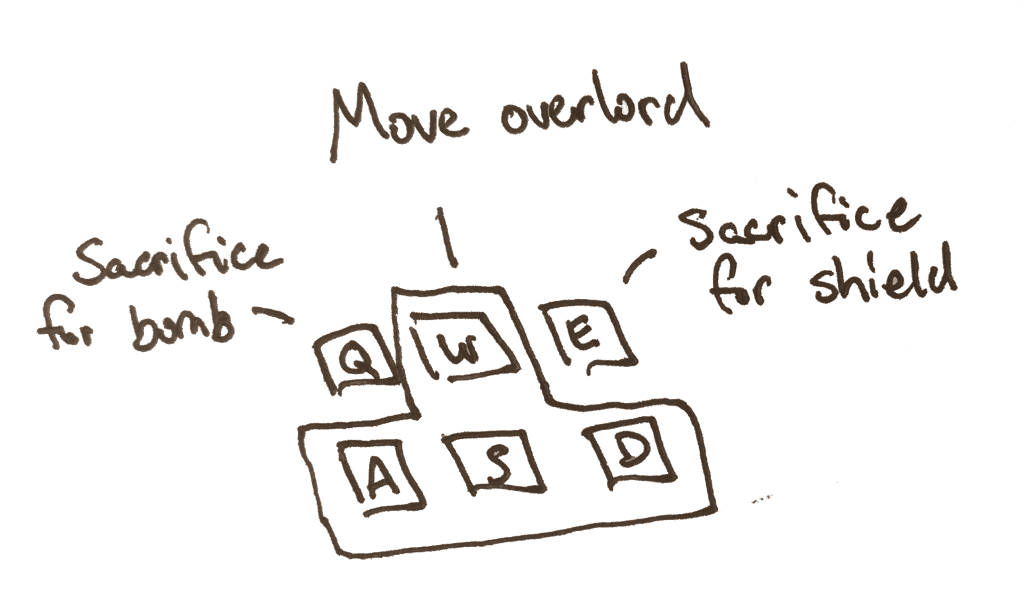 Move overlord
Sacrifice
for bomb
Sacrifice
for shield
Q W E
A S D